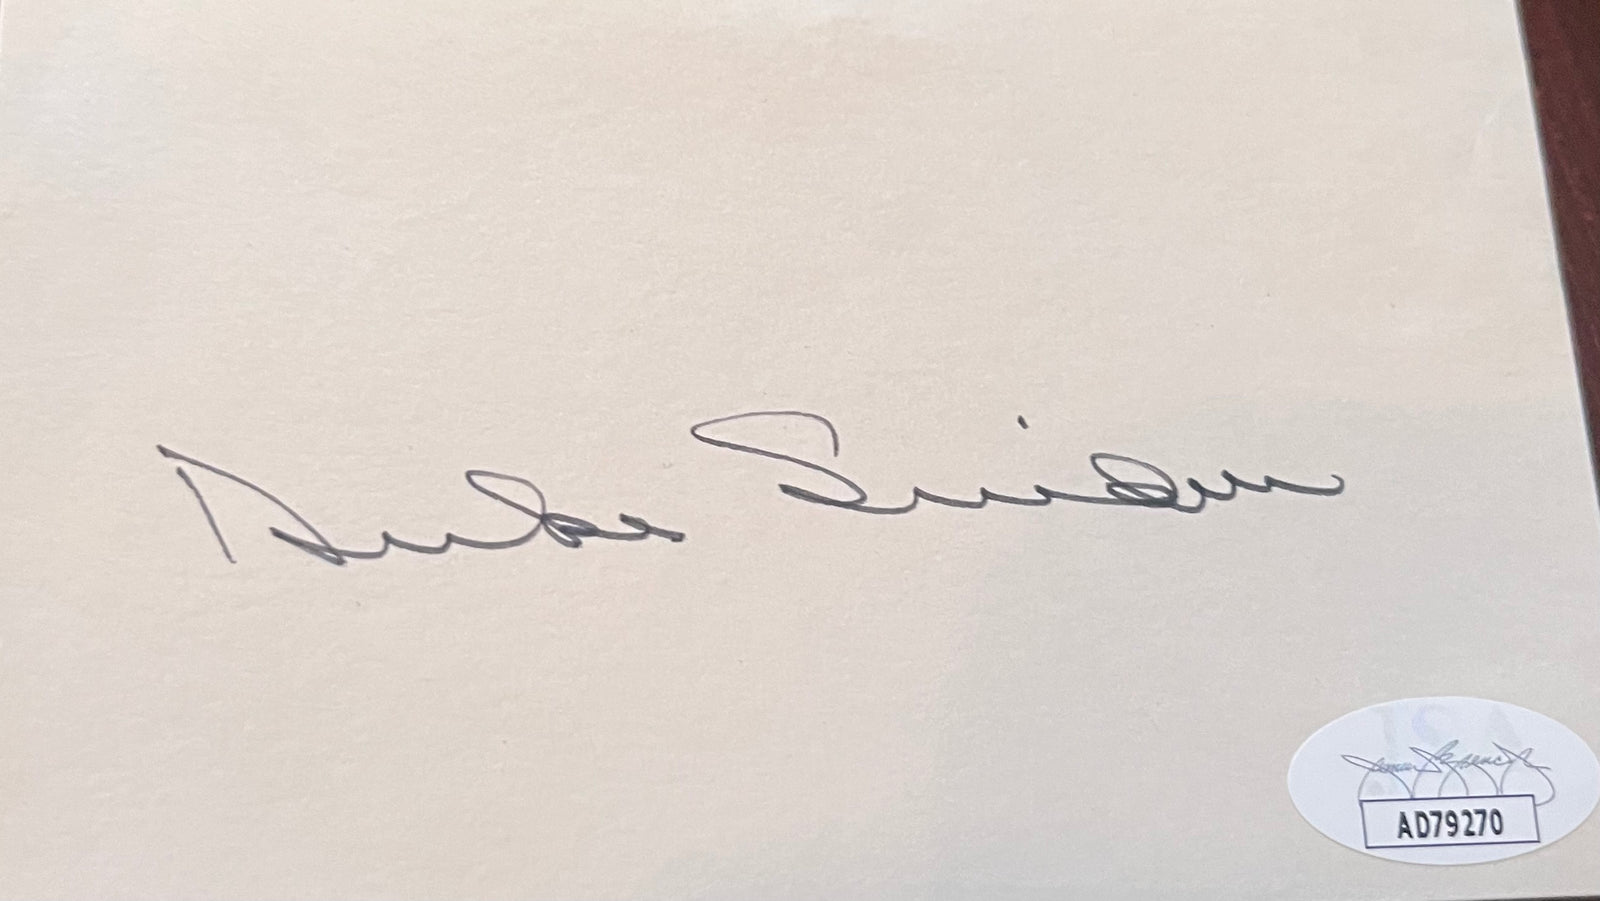 Duke Snider
James Spence Jr
JSA
AD79270